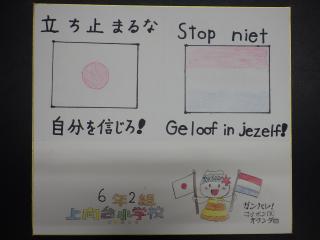 立ち止まるな
Stop niet
自分を信じろ!
Geloof in jezelf!
6年2組
上向台小学校
ガンバレ!